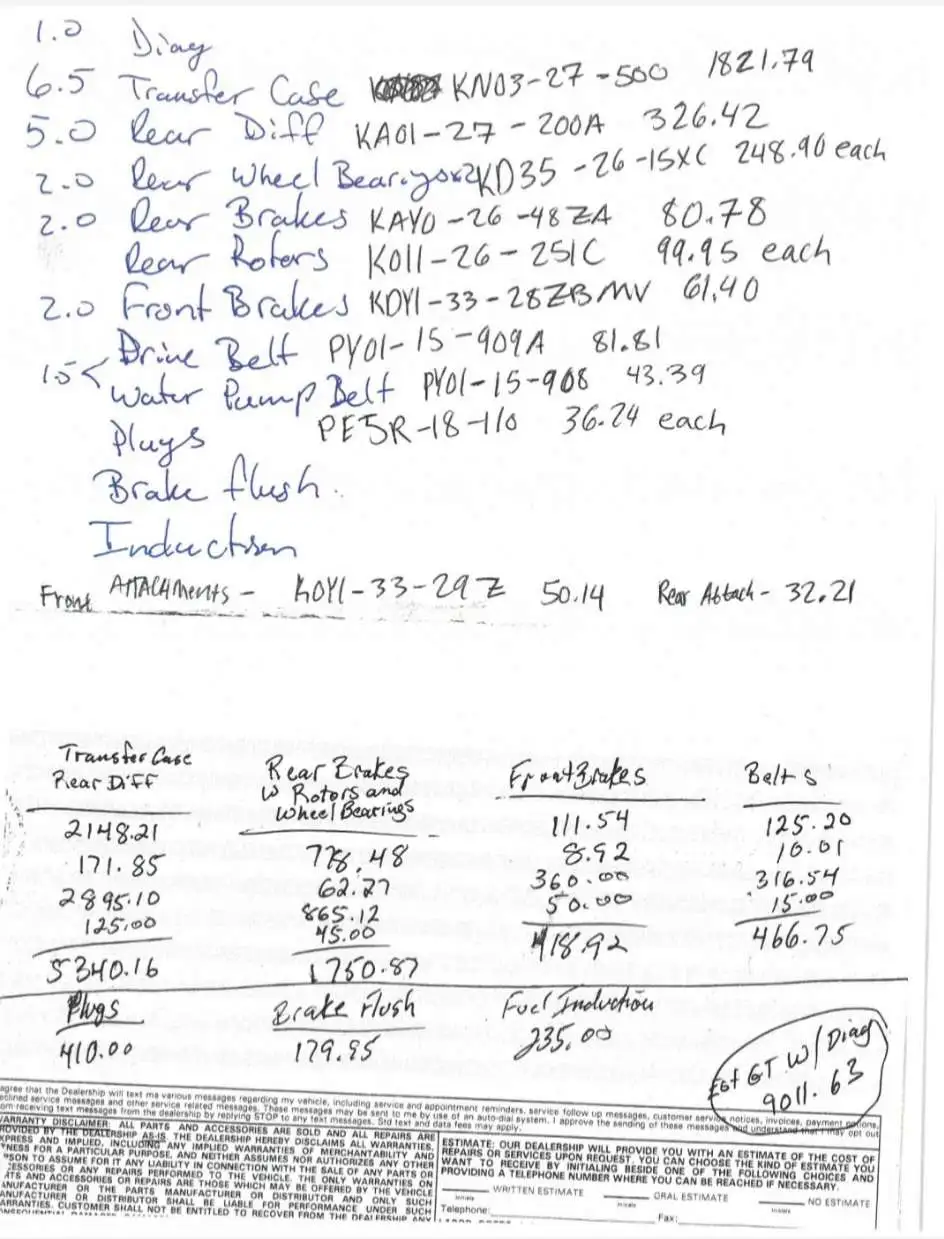 1.0 Diag
6.5 Transfer Case KN03-27-500 1821.79
5.0 Rear Diff KA01-27-200A 326.42
2.0 Rear Wheel Bearings x2 KD35-26-15XC 248.90 each
2.0 Rear Brakes KAY0-26-48ZA 80.78
Rear Rotors K011-26-251C 99.95 each
2.0 Front Brakes KDY1-33-28ZBMV 61.40
Drive Belt PY01-15-909A 81.81
1.5 <
Water Pump Belt PY01-15-908 43.39
Plugs PE5R-18-110 36.24 each
Brake flush
Induction
Front Attachments - K0Y1-33-29Z 50.14 Rear Attach - 32.21
Transfer Case
Rear Diff
2148.21
171.85
2895.10
125.00
5340.16
Rear Brakes
W Rotors and
Wheel Bearings
778.48
62.27
865.12
45.00
1750.87
Front Brakes
111.54
8.92
360.00
50.00
418.92
Belts
125.20
10.01
316.54
15.00
466.75
Plugs
410.00
Brake Flush
179.95
Fuel Induction
235.00
Est GT W/ Diag
9011.63
agree that the Dealership will text me various messages regarding my vehicle, including service and appointment reminders, service follow up messages, customer service notices, invoices, payment options,
clined service messages and other service related messages. These messages may be sent to me by use of an auto-dial system. I approve the sending of these messages and understand that I may opt out
om receiving text messages from the dealership by replying STOP to any text messages. Std text and data fees may apply.
WARRANTY DISCLAIMER: ALL PARTS AND ACCESSORIES ARE SOLD AND ALL REPAIRS ARE
ROVIDED BY THE DEALERSHIP AS-IS. THE DEALERSHIP HEREBY DISCLAIMS ALL WARRANTIES,
XPRESS AND IMPLIED, INCLUDING ANY IMPLIED WARRANTIES OF MERCHANTABILITY AND
TNESS FOR A PARTICULAR PURPOSE, AND NEITHER ASSUMES NOR AUTHORIZES ANY OTHER
RSON TO ASSUME FOR IT ANY LIABILITY IN CONNECTION WITH THE SALE OF ANY PARTS OR
CESSORIES OR ANY REPAIRS PERFORMED TO THE VEHICLE. THE ONLY WARRANTIES ON
RTS AND ACCESSORIES OR REPAIRS ARE THOSE WHICH MAY BE OFFERED BY THE VEHICLE
ANUFACTURER OR THE PARTS MANUFACTURER OR DISTRIBUTOR AND ONLY SUCH
ANUFACTURER OR DISTRIBUTOR SHALL BE LIABLE FOR PERFORMANCE UNDER SUCH
ARRANTIES. CUSTOMER SHALL NOT BE ENTITLED TO RECOVER FROM THE DEALERSHIP ANY
ESTIMATE: OUR DEALERSHIP WILL PROVIDE YOU WITH AN ESTIMATE OF THE COST OF
REPAIRS OR SERVICES UPON REQUEST. YOU CAN CHOOSE THE KIND OF ESTIMATE YOU
WANT TO RECEIVE BY INITIALING BESIDE ONE OF THE FOLLOWING CHOICES AND
PROVIDING A TELEPHONE NUMBER WHERE YOU CAN BE REACHED IF NECESSARY.
WRITTEN ESTIMATE ORAL ESTIMATE NO ESTIMATE
Initials Initials Initials
Telephone: Fax: